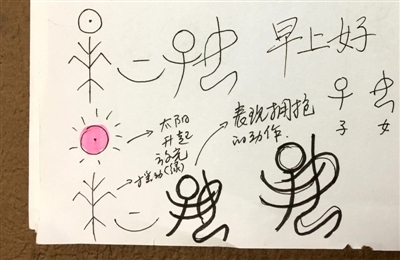 早上好
子
女
太阳
升起
放光
表现拥抱
的动作.